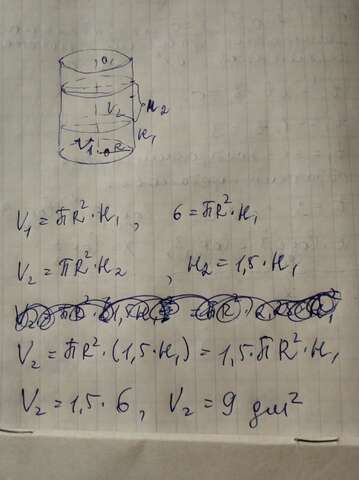 O₁
V₂ H₂
H₁
V₁ O R
V₁ = πR²·H₁, 6 = πR²·H₁
V₂ = πR²·H₂, H₂ = 1,5·H₁
V₂ = πR²·(1,5·H₁) = 1,5·πR²·H₁
V₂ = 1,5·6, V₂ = 9 дм²